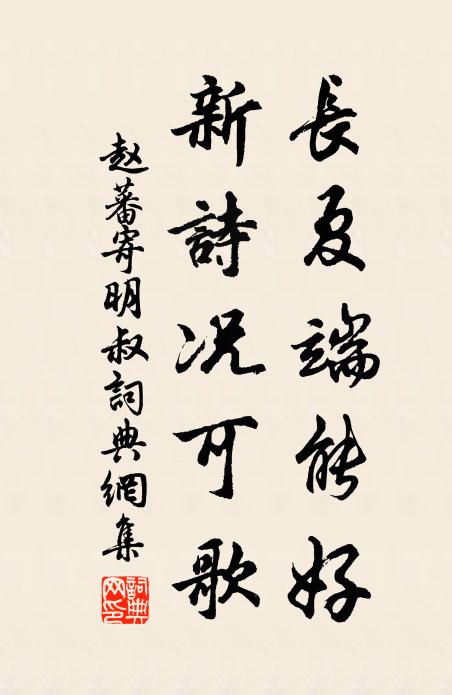 長夏端能好
新詩况可歌
赵蕃寄明叔詞典網集
詞典网印